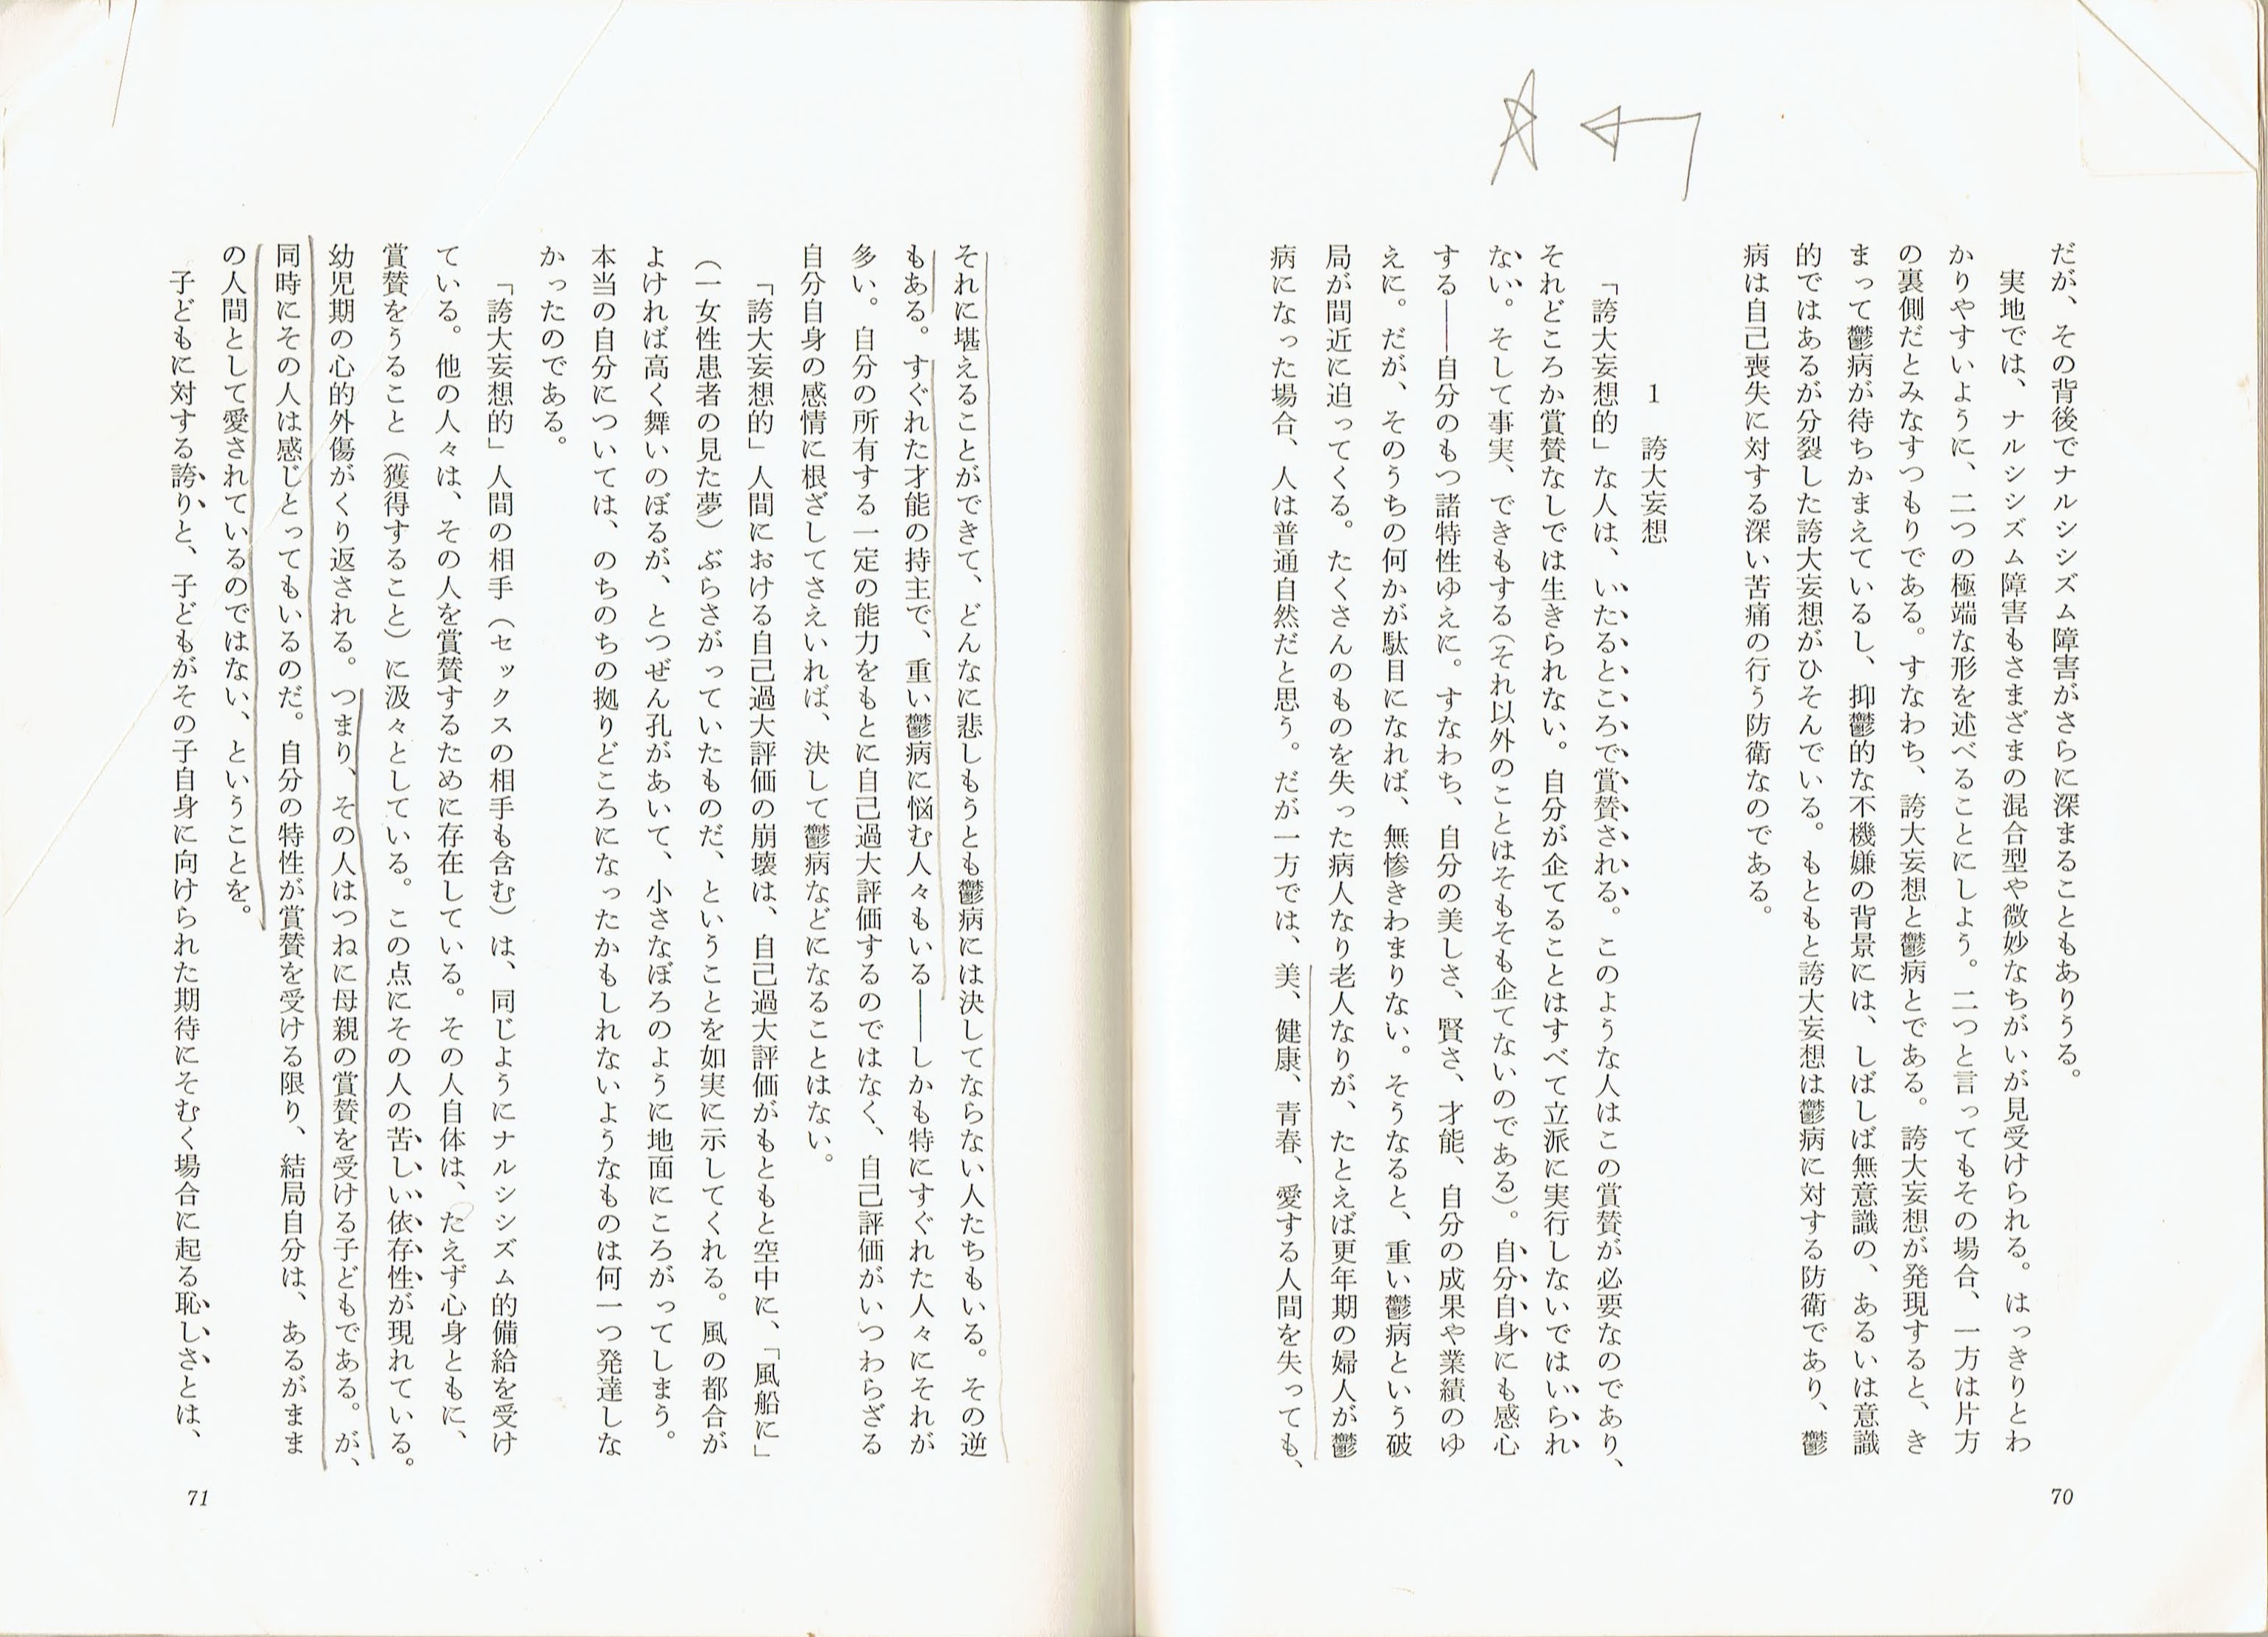 だが、その背後でナルシシズム障害がさらに深まることもありうる。
実地では、ナルシシズム障害もさまざまの混合型や微妙なちがいが見受けられる。はっきりとわ
かりやすいように、二つの極端な形を述べることにしよう。二つと言ってもその場合、一方は片方
の裏側だとみなすつもりである。すなわち、誇大妄想と鬱病とである。誇大妄想が発現すると、き
まって鬱病が待ちかまえているし、抑鬱的な不機嫌の背景には、しばしば無意識の、あるいは意識
的ではあるが分裂した誇大妄想がひそんでいる。もともと誇大妄想は鬱病に対する防衛であり、鬱
病は自己喪失に対する深い苦痛の行う防衛なのである。
1 誇大妄想
「誇大妄想的」な人は、いたるところで賞賛される。このような人はこの賞賛が必要なのであり、
それどころか賞賛なしでは生きられない。自分が企てることはすべて立派に実行しないではいられ
ない。そして事実、できもする（それ以外のことはそもそも企てないのである）。自分自身にも感心
する――自分のもつ諸特性ゆえに。すなわち、自分の美しさ、賢さ、才能、自分の成果や業績のゆ
えに。だが、そのうちの何かが駄目になれば、無惨きわまりない。そうなると、重い鬱病という破
局が間近に迫ってくる。たくさんのものを失った病人なり老人なりが、たとえば更年期の婦人が鬱
病になった場合、人は普通自然だと思う。だが一方では、美、健康、青春、愛する人間を失っても、
70
それに堪えることができて、どんなに悲しもうとも鬱病には決してならない人たちもいる。その逆
もある。すぐれた才能の持主で、重い鬱病に悩む人々もいる――しかも特にすぐれた人々にそれが
多い。自分の所有する一定の能力をもとに自己過大評価するのではなく、自己評価がいつわらざる
自分自身の感情に根ざしてさえいれば、決して鬱病などになることはない。
「誇大妄想的」人間における自己過大評価の崩壊は、自己過大評価がもともと空中に、「風船に」
（一女性患者の見た夢）ぶらさがっていたものだ、ということを如実に示してくれる。風の都合が
よければ高く舞いのぼるが、とつぜん孔があいて、小さなぼろのように地面にころがってしまう。
本当の自分については、のちのちの拠りどころになったかもしれないようなものは何一つ発達しな
かったのである。
「誇大妄想的」人間の相手（セックスの相手も含む）は、同じようにナルシシズム的備給を受け
ている。他の人々は、その人を賞賛するために存在している。その人自体は、たえず心身ともに、
賞賛をうること（獲得すること）に汲々としている。この点にその人の苦しい依存性が現れている。
幼児期の心的外傷がくり返される。つまり、その人はつねに母親の賞賛を受ける子どもである。が、
同時にその人は感じとってもいるのだ。自分の特性が賞賛を受ける限り、結局自分は、あるがまま
の人間として愛されているのではない、ということを。
子どもに対する誇りと、子どもがその子自身に向けられた期待にそむく場合に起る恥しさとは、
71